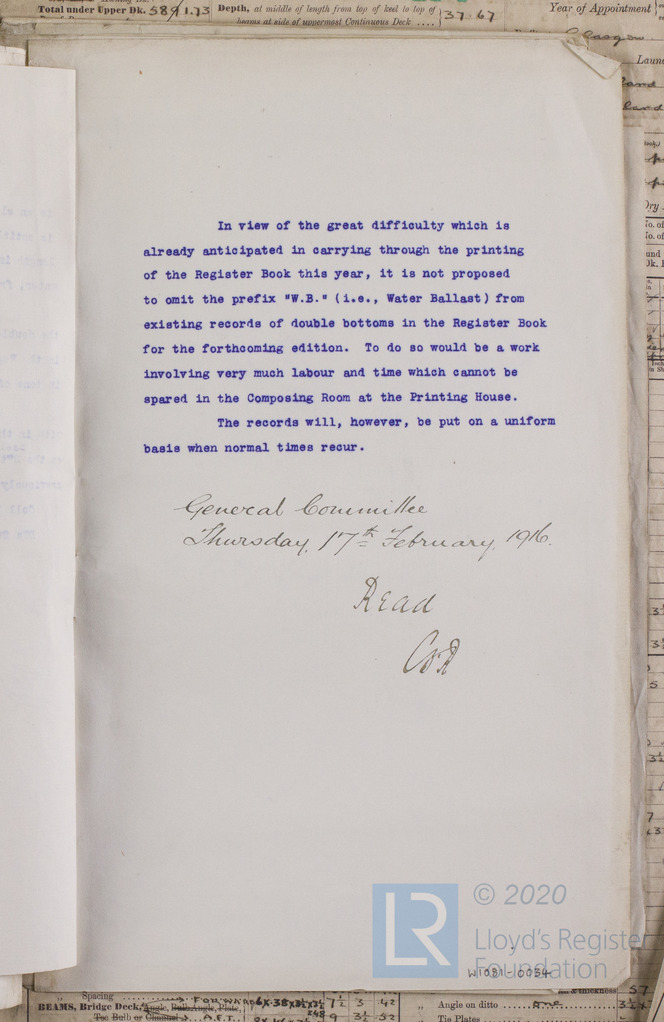 Total under Upper Dk. 5891.73
Depth, at middle of length from top of keel to top of
beams at side of uppermost Continuous Deck ....
37.67
Year of Appointment
Glasgow
In view of the great difficulty which is
already anticipated in carrying through the printing
of the Register Book this year, it is not proposed
to omit the prefix "W.B." (i.e., Water Ballast) from
existing records of double bottoms in the Register Book
for the forthcoming edition. To do so would be a work
involving very much labour and time which cannot be
spared in the Composing Room at the Printing House.
The records will, however, be put on a uniform
basis when normal times recur.
General Committee
Thursday, 17th February, 1916.
Read
LR
© 2020
Lloyd's Register
Foundation
W1081-0034
Spacing
BEAMS, Bridge Deck, Angle, Bulb Angle, Plate,
Tee Bulb or Channel
AFT.
& thickness 57
" Angle on ditto
" Tie Plates